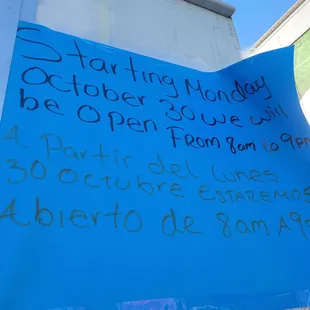 Starting Monday
October 30 we will
be open From 8am to 9pm
A Partir del Lunes
30 octubre ESTAREMOS
Abierto de 8am A 9